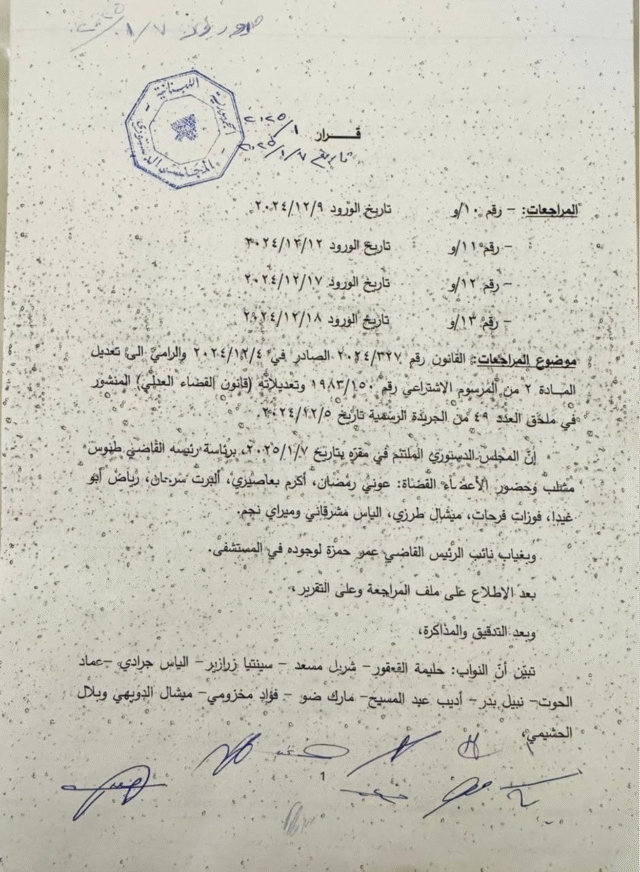 صدر ٢٠٢٥/١/٧
الجمهورية اللبنانية
المجلس الدستوري
قـــرار ٢٠٢٥/١
تاريخ ٢٠٢٥/١/٧
المراجعات: – رقم ١٠/و تاريخ الورود ٢٠٢٤/١٢/٩
– رقم ١١/و تاريخ الورود ٢٠٢٤/١٢/١٢
– رقم ١٢/و تاريخ الورود ٢٠٢٤/١٢/١٧
– رقم ١٣/و تاريخ الورود ٢٠٢٤/١٢/١٨
موضوع المراجعات: القانون رقم ٢٠٢٤/٣٢٧ الصادر في ٢٠٢٤/١٢/٤ والرامي الى تعديل
المادة ٢ من المرسوم الاشتراعي رقم ١٩٨٣/١٥٠ وتعديلاته (قانون القضاء العدلي) المنشور
في ملحق العدد ٤٩ من الجريدة الرسمية تاريخ ٢٠٢٤/١٢/٥.
إنّ المجلس الدستوري الملتئم في مقرّه بتاريخ ٢٠٢٥/١/٧، برئاسة رئيسه القاضي طنوس
مشلب وحضور الأعضاء القضاة: عوني رمضان، أكرم بعاصيري، البرت سرحان، رياض أبو
غيدا، فوزات فرحات، ميشال طرزي، الياس مشرقاني وميراي نجم.
وبغياب نائب الرئيس القاضي عمر حمزة لوجوده في المستشفى.
بعد الاطلاع على ملف المراجعة وعلى التقرير،
وبعد التدقيق والمذاكرة،
تبيّن أنّ النواب: حليمة القعقور– شربل مسعد – سينتيا زرازير– الياس جرادي –عماد
الحوت– نبيل بدر– أديب عبد المسيح– مارك ضو – فؤاد مخزومي– ميشال الدويهي وبلال
الحشيمي،
1